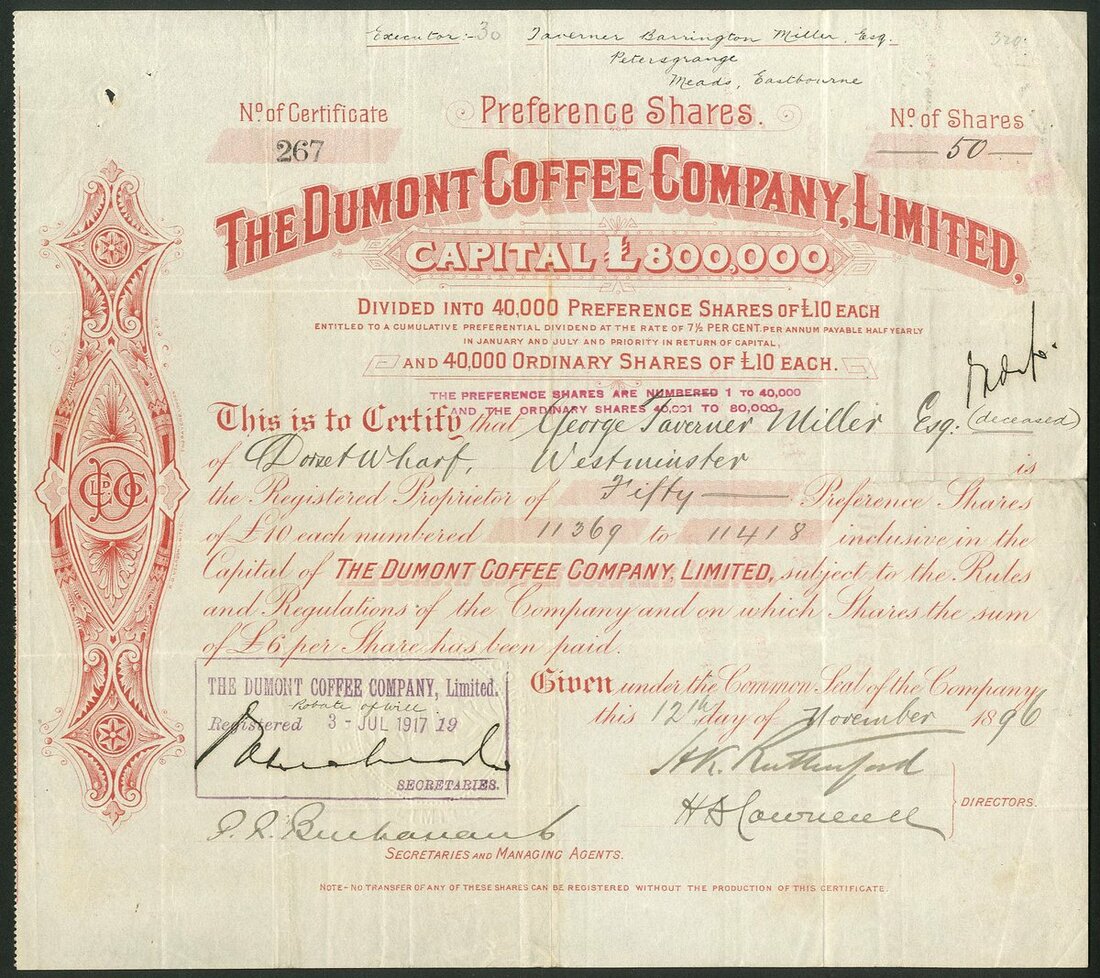 Executor:- 30 Taverner Barrington Miller, Esq.
320
Petersgrange
Meads, Eastbourne
No. of Certificate
267
Preference Shares.
No. of Shares
50
THE DUMONT COFFEE COMPANY, LIMITED,
CAPITAL £800,000.
DIVIDED INTO 40,000 PREFERENCE SHARES OF £10 EACH
ENTITLED TO A CUMULATIVE PREFERENTIAL DIVIDEND AT THE RATE OF 7½ PER CENT. PER ANNUM PAYABLE HALF YEARLY
IN JANUARY AND JULY AND PRIORITY IN RETURN OF CAPITAL,
AND 40,000 ORDINARY SHARES OF £10 EACH.
THE PREFERENCE SHARES ARE NUMBERED 1 TO 40,000
AND THE ORDINARY SHARES 40,001 TO 80,000.
This is to Certify that George Taverner Miller Esq. (deceased)
of Dorset Wharf, Westminster is
the Registered Proprietor of Fifty Preference Shares
of £10 each numbered 11369 to 11418 inclusive in the
Capital of THE DUMONT COFFEE COMPANY, LIMITED, subject to the Rules
and Regulations of the Company and on which Shares the sum
of £6 per Share has been paid.
THE DUMONT COFFEE COMPANY, Limited.
Probate of Will
Registered 3 - JUL 1917 19
SECRETARIES.
Given under the Common Seal of the Company
this 12th day of November 1896
H.K. Rutherford
DIRECTORS.
SECRETARIES AND MANAGING AGENTS.
NOTE - NO TRANSFER OF ANY OF THESE SHARES CAN BE REGISTERED WITHOUT THE PRODUCTION OF THIS CERTIFICATE.